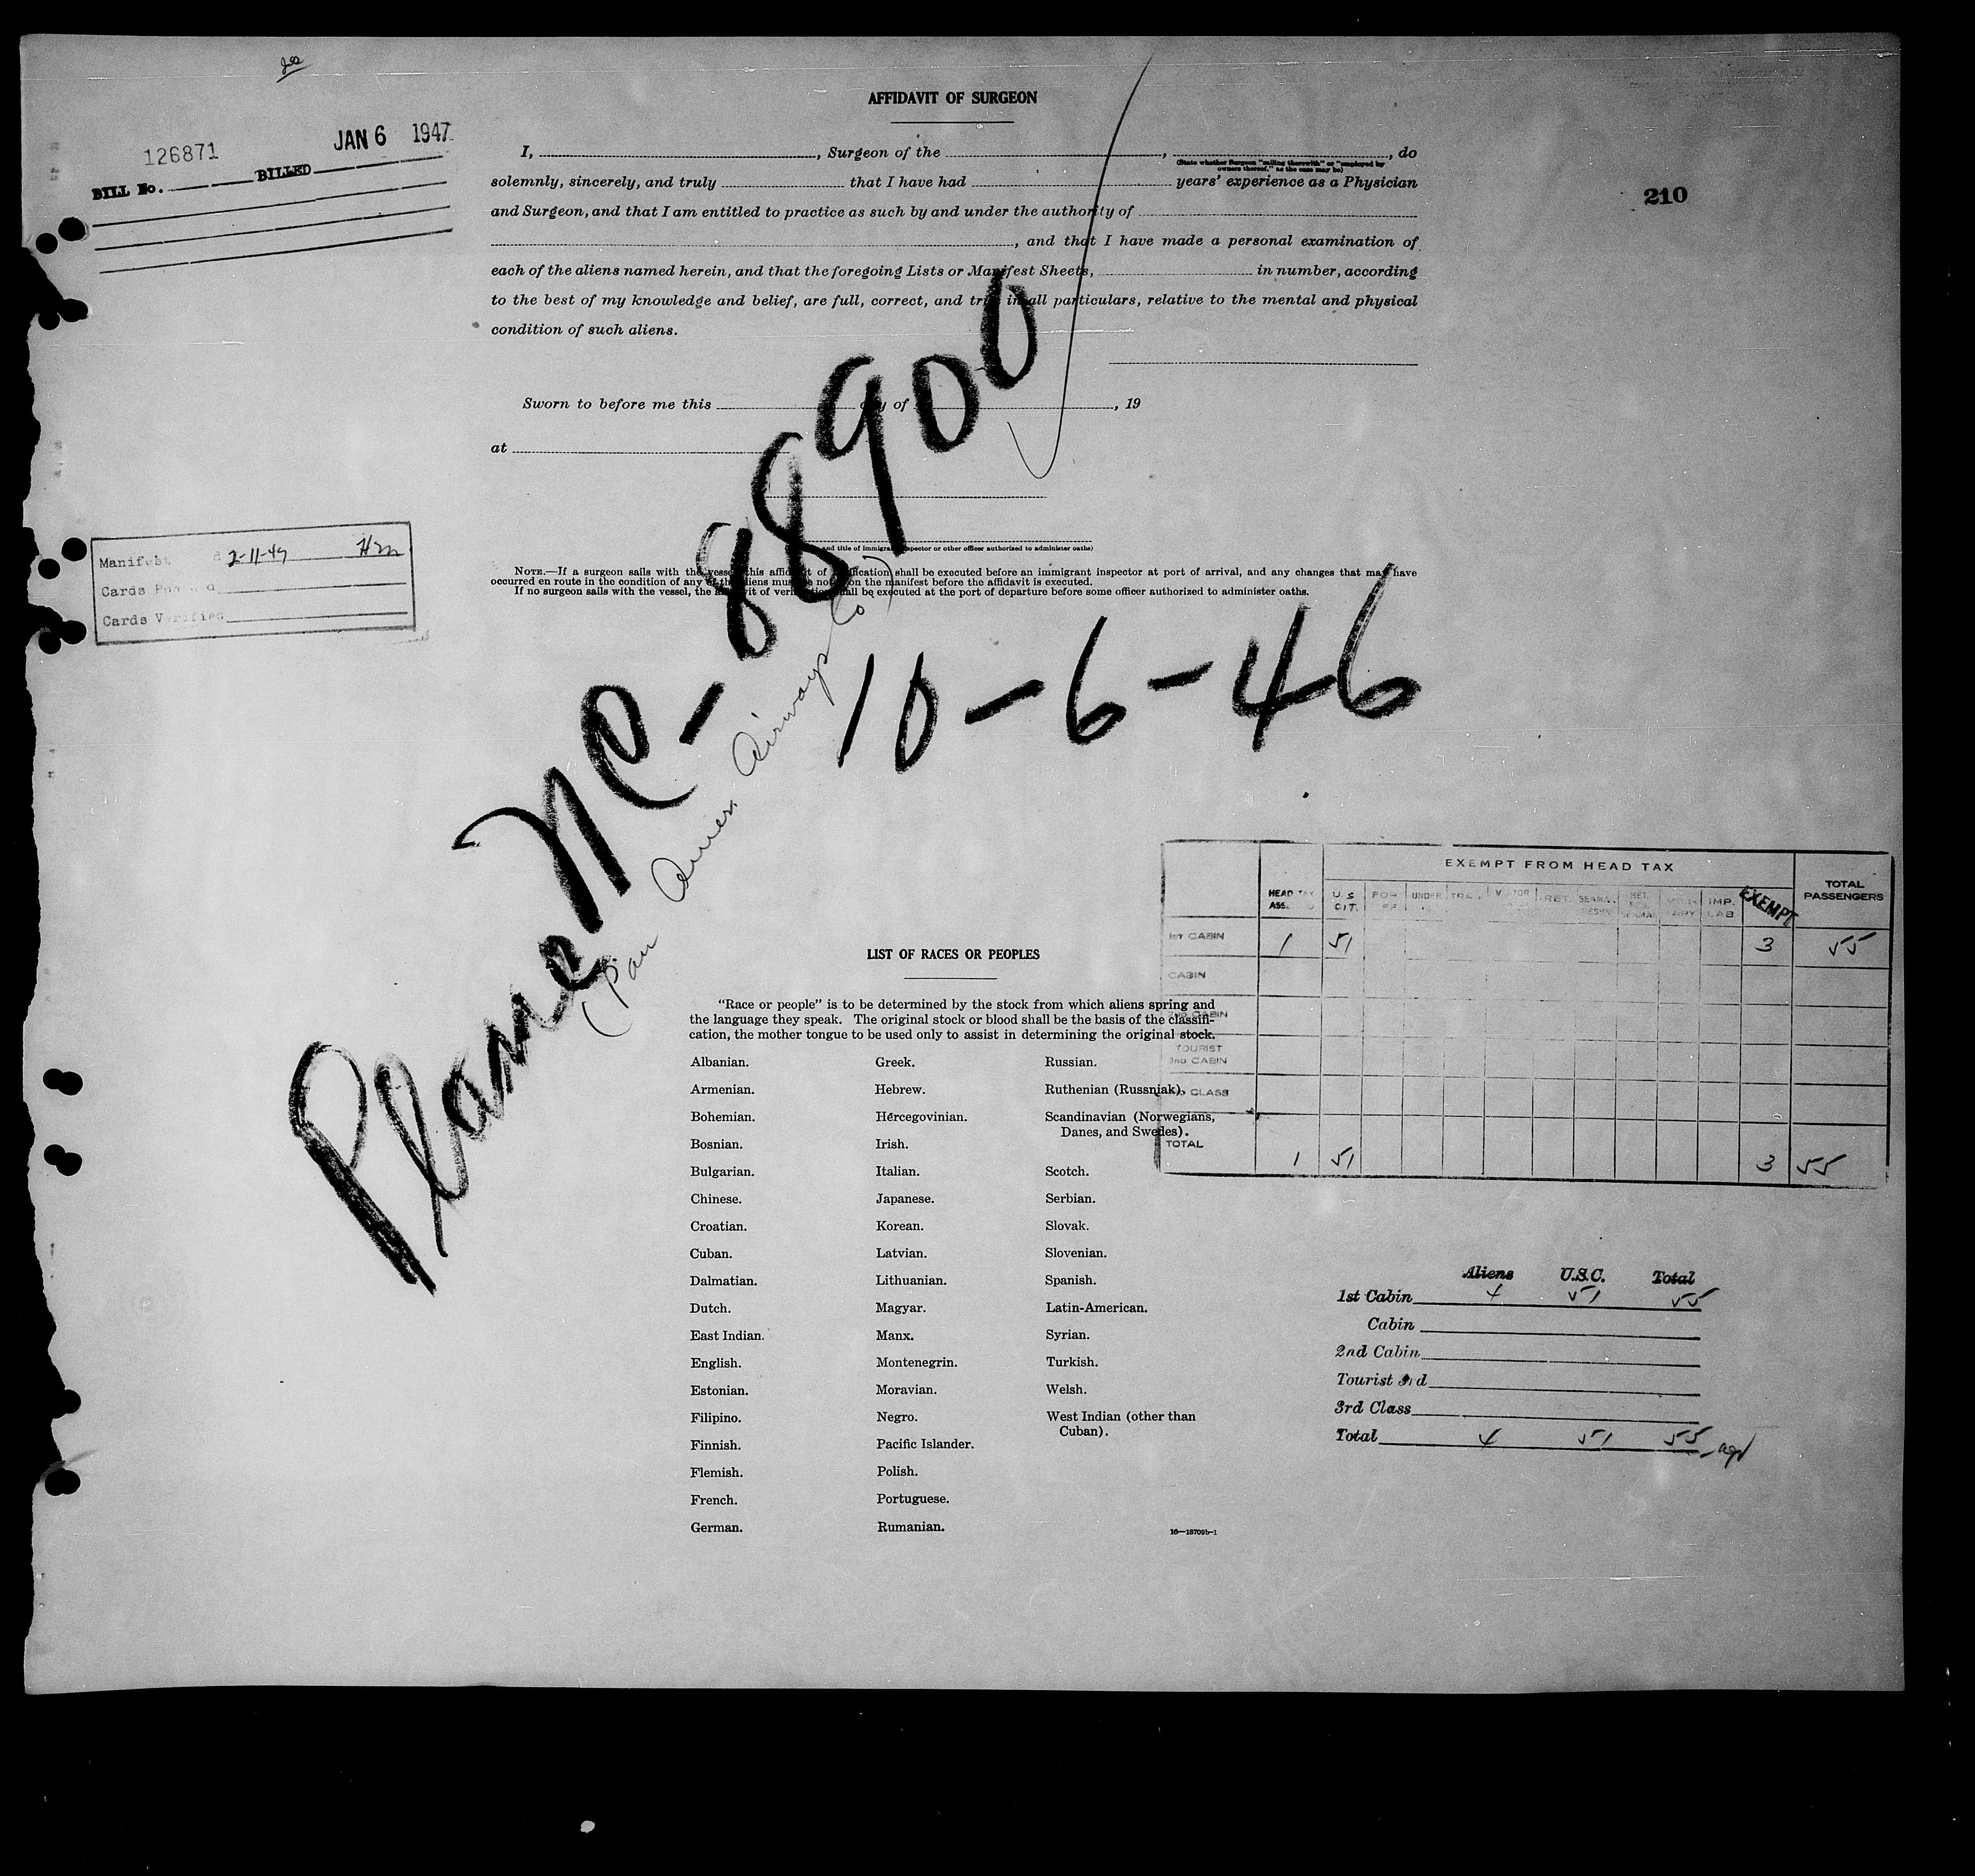 AFFIDAVIT OF SURGEON
126871 JAN 6 1947
BILL No. BILLED
210
I, , Surgeon of the , , do
(State whether Surgeon "sailing therewith" or "employed by
owners thereof," as the case may be)
solemnly, sincerely, and truly that I have had years' experience as a Physician
and Surgeon, and that I am entitled to practice as such by and under the authority of
, and that I have made a personal examination of
each of the aliens named herein, and that the foregoing Lists or Manifest Sheets, in number, according
to the best of my knowledge and belief, are full, correct, and true in all particulars, relative to the mental and physical
condition of such aliens.
Sworn to before me this day of , 19
at
and title of immigrant inspector or other officer authorized to administer oaths)
NOTE.—If a surgeon sails with the vessel, this affidavit of verification shall be executed before an immigrant inspector at port of arrival, and any changes that may have
occurred en route in the condition of any of the aliens must be noted on the manifest before the affidavit is executed.
If no surgeon sails with the vessel, the affidavit of verification shall be executed at the port of departure before some officer authorized to administer oaths.
Manifest 2-11-47
Cards
Cards Verified
Plane NC-88900
(Pan Amer. Airways Co)
10-6-46
EXEMPT FROM HEAD TAX
HEAD TAX U.S. CIT. UNDER RET. IMP. LAB EXEMPT TOTAL PASSENGERS
1ST CABIN 1 51 3 55
CABIN
2ND CABIN
TOURIST
3RD CABIN
CLASS
TOTAL 1 51 3 55
LIST OF RACES OR PEOPLES
"Race or people" is to be determined by the stock from which aliens spring and
the language they speak. The original stock or blood shall be the basis of the classifi-
cation, the mother tongue to be used only to assist in determining the original stock.
Albanian. Greek. Russian.
Armenian. Hebrew. Ruthenian (Russniak).
Bohemian. Hercegovinian. Scandinavian (Norwegians,
Danes, and Swedes).
Bosnian. Irish.
Bulgarian. Italian. Scotch.
Chinese. Japanese. Serbian.
Croatian. Korean. Slovak.
Cuban. Latvian. Slovenian.
Dalmatian. Lithuanian. Spanish.
Dutch. Magyar. Latin-American.
East Indian. Manx. Syrian.
English. Montenegrin. Turkish.
Estonian. Moravian. Welsh.
Filipino. Negro. West Indian (other than
Cuban).
Finnish. Pacific Islander.
Flemish. Polish.
French. Portuguese.
German. Rumanian.
16—18709b-1
Aliens U.S.C. Total
1st Cabin 4 51 55
Cabin
2nd Cabin
Tourist 3rd
3rd Class
Total 4 51 55